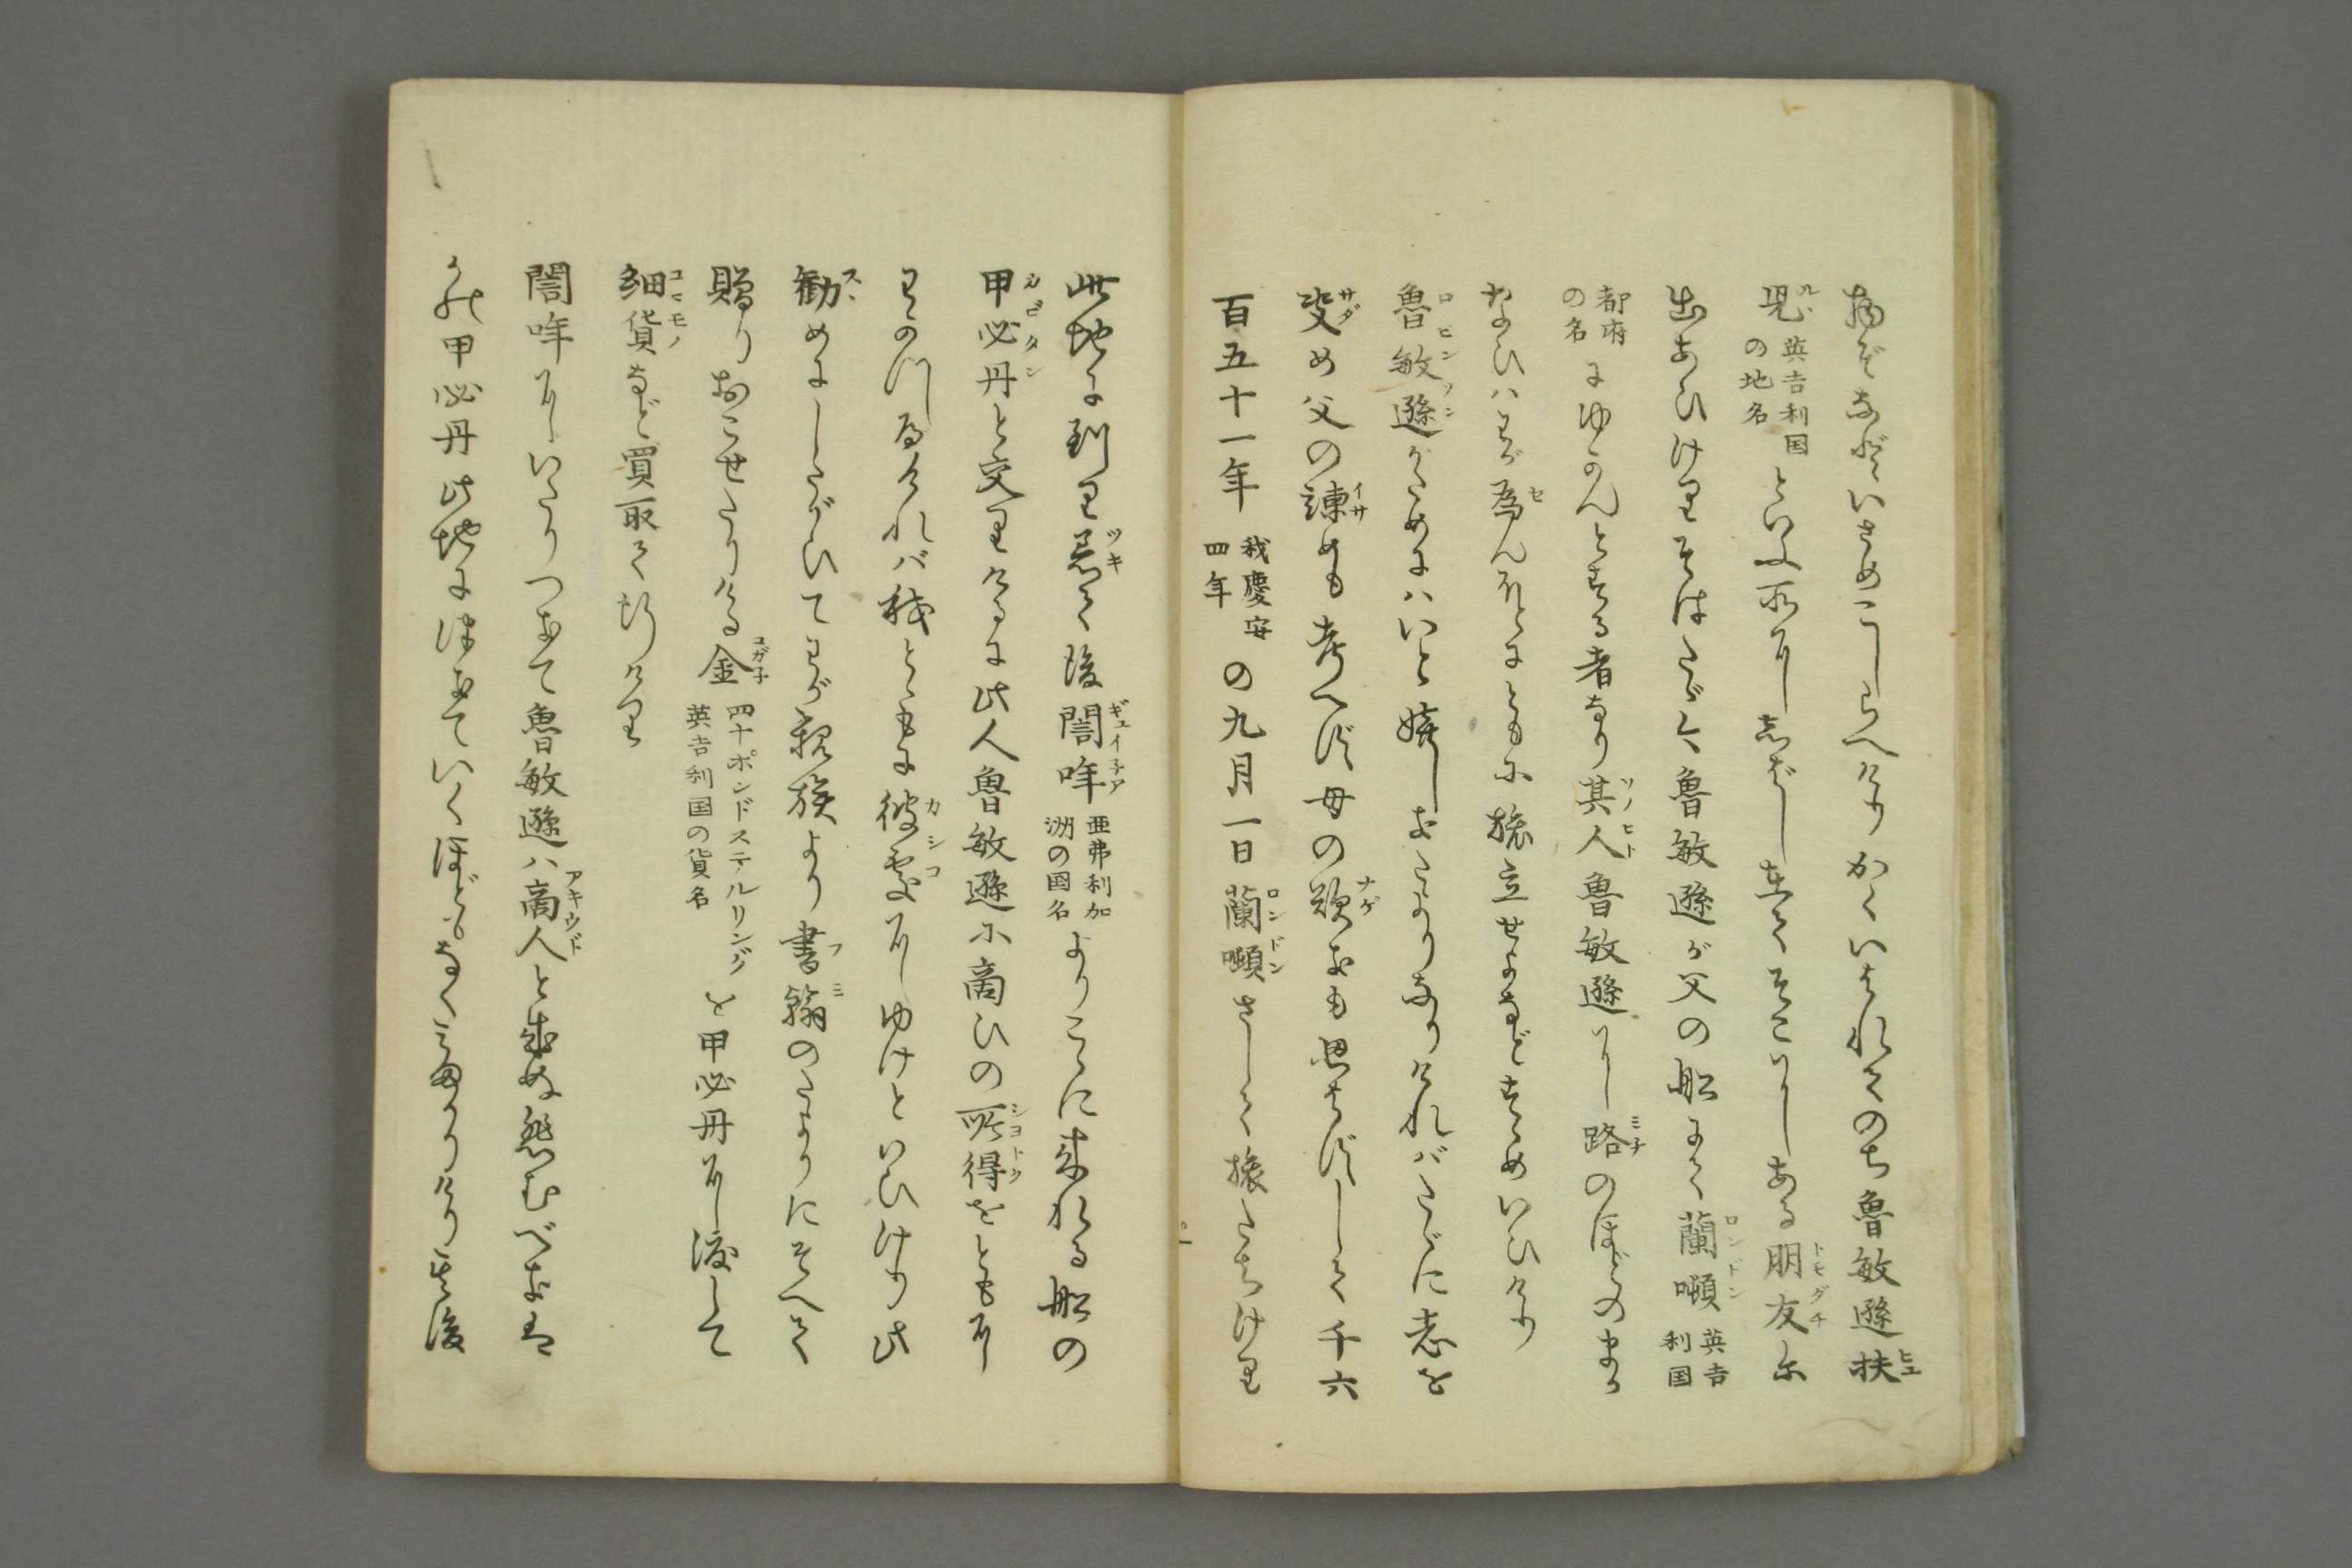 物ぞなどいさめこしらへけりかくいはれてのち魯敏遜扶
児英吉利国の地名といふ所にしばし在てそこにある朋友に
出あひけりそはたゞ今魯敏遜が父の船にて蘭噸英吉利国
都府の名にゆかんとする者なり其人魯敏遜に路のほどのまか
なひハわが為んほどにともに旅立せよなどすゝめいひけり
魯敏遜がためにハいと嬉しきたよりなりければたゞに志を
叜め父の諫めも考へず母の歎きも思はずして千六
百五十一年我慶安四年の九月一日蘭噸さして旅たちけり
此地に到り着て後誾哖亜弗利加洲の国名よりこゝに来れる船の
甲必丹と交りけるに此人魯敏遜に商ひの所得をともに
わかつべければ我とゝもに彼処にゆけといひけり此
勧めにしたがひてわが親族より書翰のたよりにそへて
贈りおこせたりける金四十ポンドステルリング英吉利国の貨名を甲必丹に渡して
細貨など買取て行けり
誾哖にいたりつきて魯敏遜ハ商人と成ぬ悲むべきは
かの甲必丹此地に津きていくほどもなくみまかりけり其後